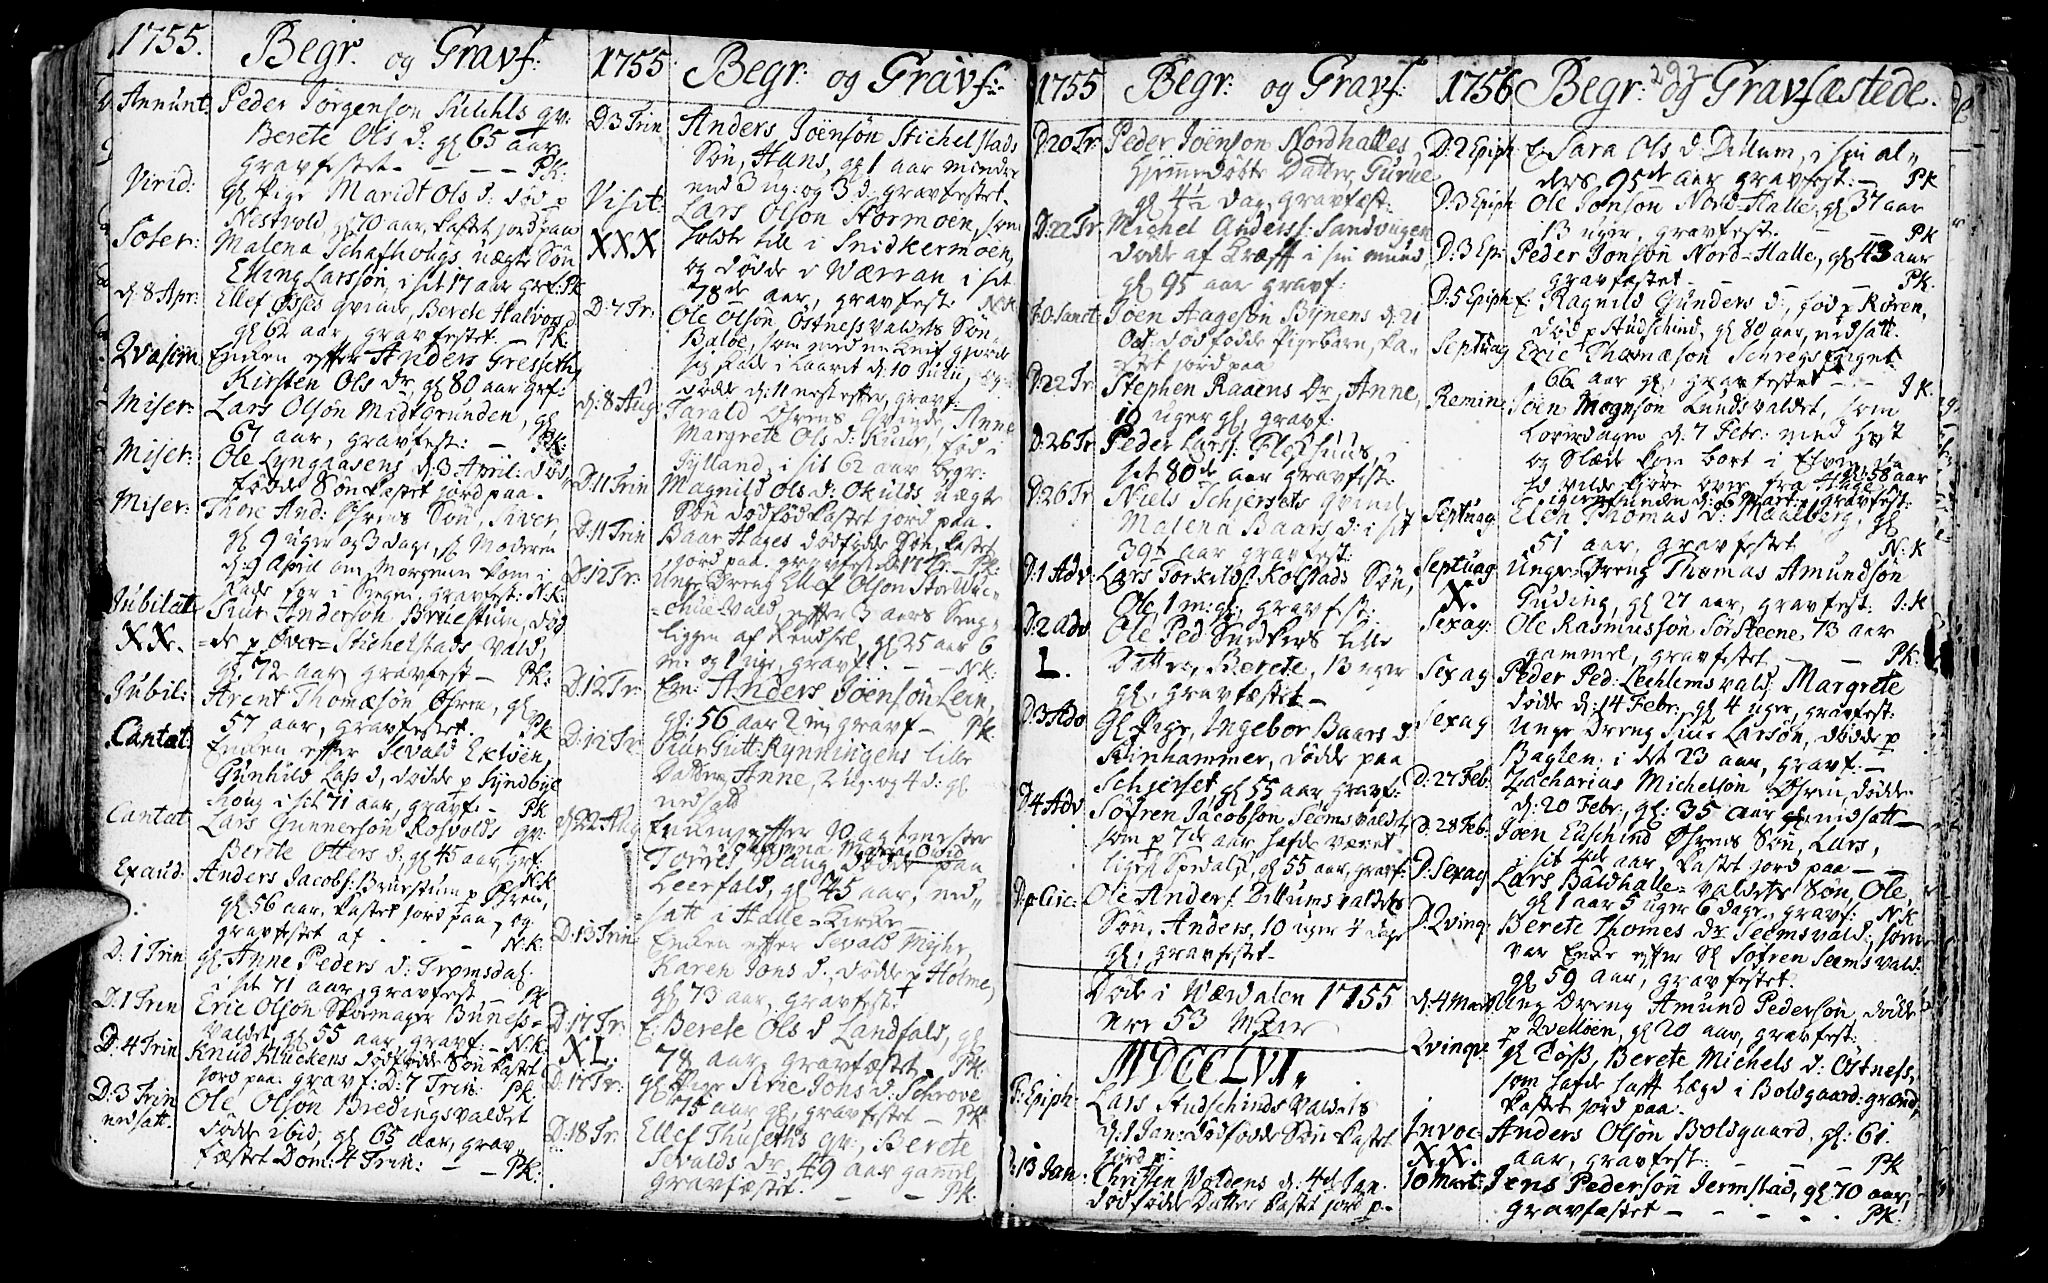 1755. Begr. og Gravf:
Annunt: Peder Jörgenson Suuhls qv:
Berete Ols d: gl 65 aar
gravfestet - - - - PK:
Virid: gl Pige Maridt Ols d: död p
Nestvold, gl 70 aar, kastet jord paa
Soter: Malena Schafhougs uægte Sön
Elling Larssön, i sit 17 aar grf. PK
d: 8 Apr: Ellef Öfses qvinde, Berete Halvors d
gl 62 aar, gravfestet - PK.
Qvasim Enken efter Anders Gresseth,
Kirsten Ols dr, gl 80 aar grf:
Miser: Lars Olsön Midtgrunden, gl
67 aar, gravfest: - PK:
Miser: Ole Lyngaasens d: 3 April: död
födde Sön kastet jord paa.
Miser: Thore And: Öhrens Sön, Siver,
gl 9 uger og 3 dage, Moderen
d: 9 April om Morgenen kom i
Sengen, gravfest: N.K:
Jubilate Siur Anderson Brüestuen, död
XX. -de p Över-Stichelstads vald,
gl 72 aar, gravfest - PK:
Jubil: Arent Thomæsön Öhren, gl
57 aar, gravfestet. PK
Cantat: Enken efter Sevald Exlsen,
Gunhild Lars d, dödde p Syndbye
houg i sit 71 aar, gravf - PK
Cantat Lars Gunnersön Rosvolds qv:
Berete Otters d: gl 45 aar, grf.
N.K
Exaud: Anders Jacobs: Brüestuen p Öhren,
gl 56 aar, kastet jord paa, og
gravfestet af - - N.K:
D: 1 Trin gl Anne Peders d: Tromsdal.
i sit 71 aar, gravfest - PK
D: 1 Trin Eric Olsön Skomager Buness-
valdet, gl 55 aar, gravf: - N.K.
D: 4 Trin Knud Kluckens dödfödde Sön kastet
jord paa: gravf: D: 7 Trin: PK:
D: 3 Trin Ole Olsön Bredingsvaldet
nedsatt. dödde ibid, gl 65 aar, grav-
fæstet Dom: 4 Trin: - - PK:
1755 Begr: og Gravf:
D: 3 Trin Anders Joënsön Stichelstads
Sön, Hans, og 1 aar mindre
end 3 ug: og 3 d: gravfestet.
Visit: Lars Olsön Stormoen, som
XXX holdte till i Snidkermoen,
og dödde i Wærran i sit
78de aar, gravfest N.K
D: 7 Tr: Ole Olsön, Östnessvaldets Sön
Baloe, som med en Knif gjorde
sig skade i Laaret d: 10 Julii,
dödde d: 11 nest efter, gravf.
d: 8 Aug: Tarald Öhrens Qvinde, Anne
Margrete Ols d: Kuur, föd i
Jylland, i sit 62 aar begr:
D: 11 Trin Magnild Ols d: Okulds uægte
Sön dödföd kastet jord paa.
D: 11 Trin Baar Hages dödfödde Sön, kastet
jord paa. gravfest D: 17 Tr - PK:
D: 12 Tr: Unge Dreng Ellef Olsön Stor
vald, efter 3 aars Seng-
liggen af gl 25 aar 6
m: og 1 uge, gravf. - - N.K:
D: 12 Tr: Em: Anders Joënsön Lein,
gl: 56 aar 2 m: gravf - PK
D: 12 Tr: Siur Gutt: Rynningens lille
Datter Anne, 2 ug: og 4 d: gl.
nedsatt
d: 22 Aug Enken efter Vagtmester
Anna Maria
Torris Waug dödde paa
Leerfald, gl 45 aar, ned-
satt i Halle-Kirke
D: 13 Trin Enken efter Sevald Myhr,
Karen Jons d. dödde p Holme,
gl 73 aar, gravfest:
D: 17 Tr: E: Berete Ols d Landfald, gl
XL. 78 aar, gravfæstet. PK:
D: 17 Tr: gl Pige Sirie Jons d: Schrove
75 aar gl, gravfestet - PK
D: 18 Tr Ellef Thuseths qv, Berete
Sevalds dr, 49 aar gamel
gravfæstet. - - PK.
1755 Begr: og Gravf:
D: 20 Tr: Peder Joënson Nordhalles,
hjemedöbte Datter, Gurue
gl 4½ dag, gravfæst:
D: 22 Tr. Michel Anderss: Sandvigen
dödde af Kræft i sin mund,
gl 95 aar gravf:
F. O. Sanct: Joen Aagesön Bynens d: 21
Oct: dödfödde Pigebarn, ka-
stet jord paa
D: 22 Tr: Stephen Raaens Dr, Anne,
18 uger gl, gravf:
D: 26 Tr Peder Larss: Fleshuus, i
sit 80de aar gravfest.
D: 26 Tr Niels Schjersets qvinde
Malena Baars d: i sit
39t aar gravfest:
D: 1 Adv: Lars Torkilds: Kolstads Sön,
Ole 1 m: gl, gravfest:
D: 2 Adv Ole Ped Snedkers lille
L. Datter, Berete, 13 uger
gl, gravfæstet -
D: 3 Adv Gl Pige, Ingebor Baars d
Steinhammer, dödde paa
Schjerset gl 55 aar gravf:
D: 4 Adv: Söfren Jacobson Seemsvaldet
som p 7de aar hafde været
ligesl Spedalsk, gl 55 aar, gravf:
D: p Circ: Ole Anders: Dillumsvaldets
Sön, Anders, 10 uger 4 dage
gl, gravfestet.
Döde i Wærdalen 1755
ere 53 Mskr
MDCCLVI.
F: Epiph: Lars Audschinds Valdets
d: 1 Jan: dödfödde Sön kastet
jord p:
D: 13 Jan: Christen Woldens d: 4de Jan.
dödfödde Datter kastet jord p-
1756 Begr: og Gravfæstede. 293
D: 2 Epiph: E: Sara Ols d Dillum, i sin al-
ders 95de aar gravfest: - PK
D: 3 Epiph Ole Jonsön Nord-Halle, gl 37 aar
13 uger, gravfest. - - PK
D: 3 Epi: Peder Jonsön Nord-Halle, gl 43 aar
gravfæstet - - PK:
D: 5 Epiph: E: Ragnild Gunders d:, föd p Rören,
död p Audschind, gl 80 aar, nedsatt.
Septuag Eric Thomæsön Schregstviget
66 aar gl, gravfestet - - J K.
Remin: Joen Mognsön Lundsvaldet, som
Löverdagen d: 7 Febr: med hest
og Slæde kom bort i Elven da
hd vilde kiöre over fra Hage, gl: 58 aar
igienfunden d: 6 Mart: gravfest:
Septuag Elen Thomas d: Maalberg, gl
51 aar, gravfestet N: K
Septuag Unge Dreng Thomas Amundsön
X. Guding, gl 27 aar, gravfest: J: K
Sexag: Ole Rasmussön Sör Steene, 73 aar
gammel, gravfestet - - PK:
Sexag Peder Ped: Lechlems vald: Margrete
dödde d: 14 Febr: gl 4 uger, gravfest:
Sexag Unge Dreng Siur Larsön, dödde p
Baglen: i det 23 aar, gravf: -
D: 27 Feb: Zacharias Michelsön Öhren, dödde
d: 20 Febr: gl: 35 aar nedsatt -
D: 28 Feb: Joen Eilschind Öhrens Sön, Lars,
i sit 4de aar, kastet jord paa -
D: Sexag Lars Baldhalle-valdets Sön, Ole,
gl 1 aar 5 uger 6 dage, gravf: N.K
D: Qvinq: Berete Thomes dr Seemsvald: som
var Enke efter Sl Söfren Seemsvald:
gl 59 aar, gravfestet.
d: 4 Mart Ung Dreng Amund Pedersön, dödde
p Qvelloen, gl 20 aar, gravfest:
Qvinqv: gl Töss, Berete Michels d: Östness,
som hafde haft Lægd i Bolsgaard: grand,
kastet jord paa.
Invoc: Anders Olsön Bolsgaard, gl: 61.
XX. aar, gravfest: - - - PK
10 Mart: Jens Pederson Jermstad, gl 70 aar,
gravfæstet - - - - PK.